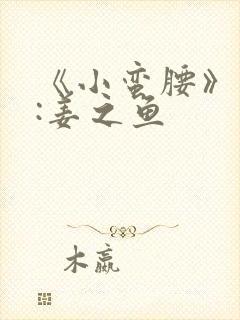 《小蛮腰》
:姜之鱼
木嬴